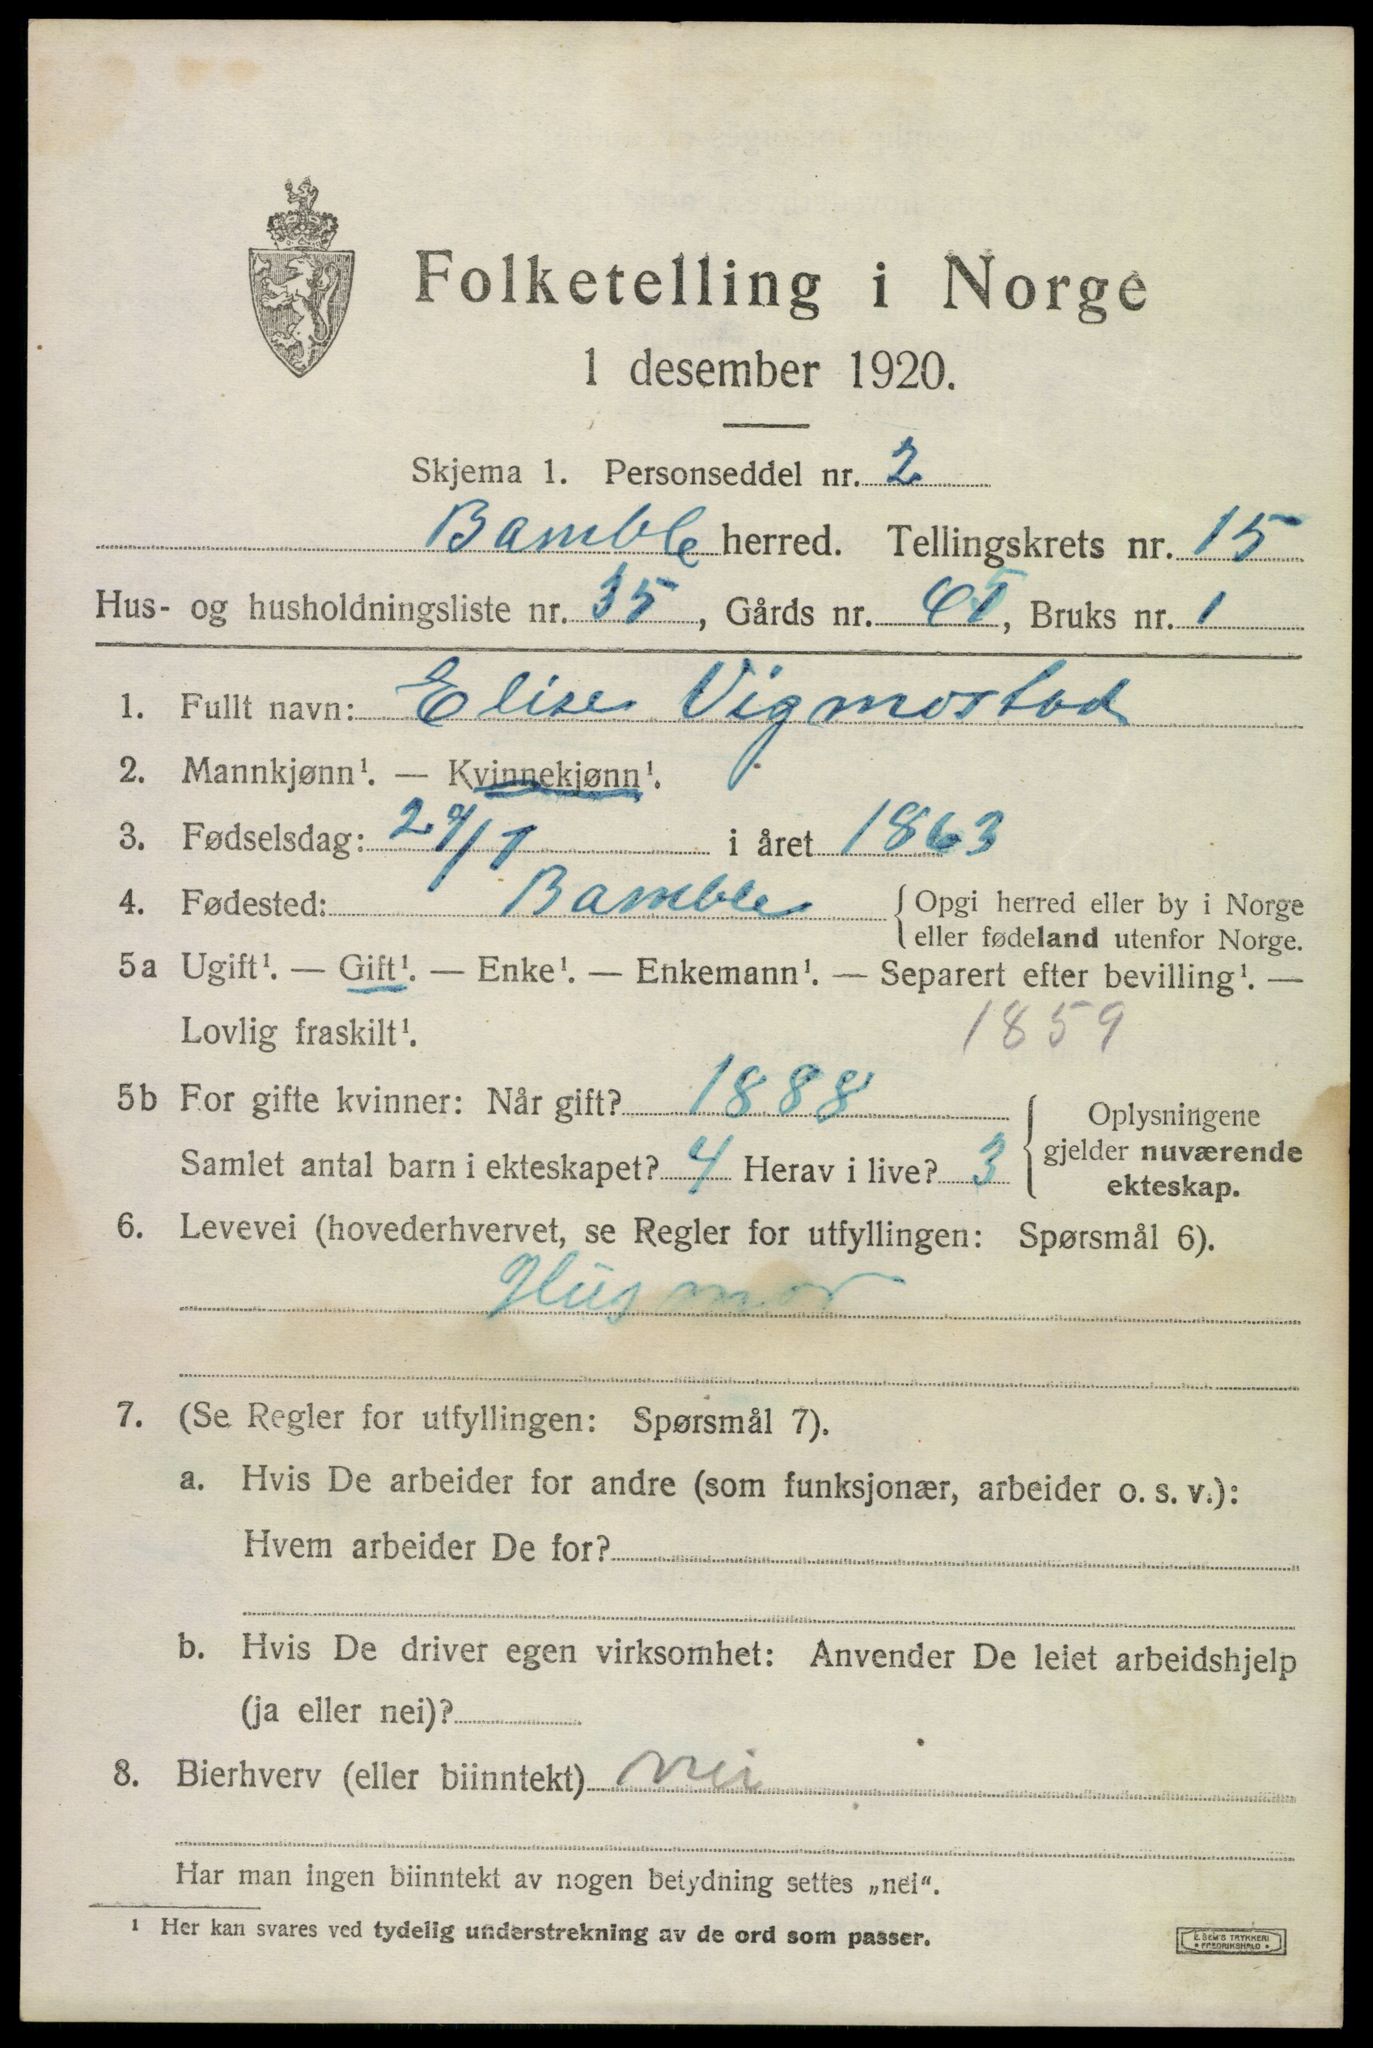 Folketelling i Norge
1 desember 1920.
Skjema 1. Personseddel nr. 2
Bamble herred. Tellingskrets nr. 15
Hus- og husholdningsliste nr. 35, Gårds nr. Bruks nr. 1
1. Fullt navn: Elise Vigmostad
2. Mannkjønn¹. — Kvinnekjønn¹.
3. Fødselsdag: i året 1863
4. Fødested: Bamble { Opgi herred eller by i Norge
eller fødeland utenfor Norge.
5a Ugift¹. — Gift¹. — Enke¹. — Enkemann¹. — Separert efter bevilling¹. —
Lovlig fraskilt¹. 1859
5b For gifte kvinner: Når gift? 1888
Samlet antal barn i ekteskapet? 4 Herav i live? 3
{ Oplysningene
gjelder nuværende
ekteskap.
6. Levevei (hovederhvervet, se Regler for utfyllingen: Spørsmål 6).
Husmor
7. (Se Regler for utfyllingen: Spørsmål 7).
a. Hvis De arbeider for andre (som funksjonær, arbeider o. s. v.):
Hvem arbeider De for?
b. Hvis De driver egen virksomhet: Anvender De leiet arbeidshjelp
(ja eller nei)?
8. Bierhverv (eller biinntekt) nei
Har man ingen biinntekt av nogen betydning settes „nei“.
¹ Her kan svares ved tydelig understrekning av de ord som passer.
E. SEM'S TRYKKERI
• FREDRIKSHALD •